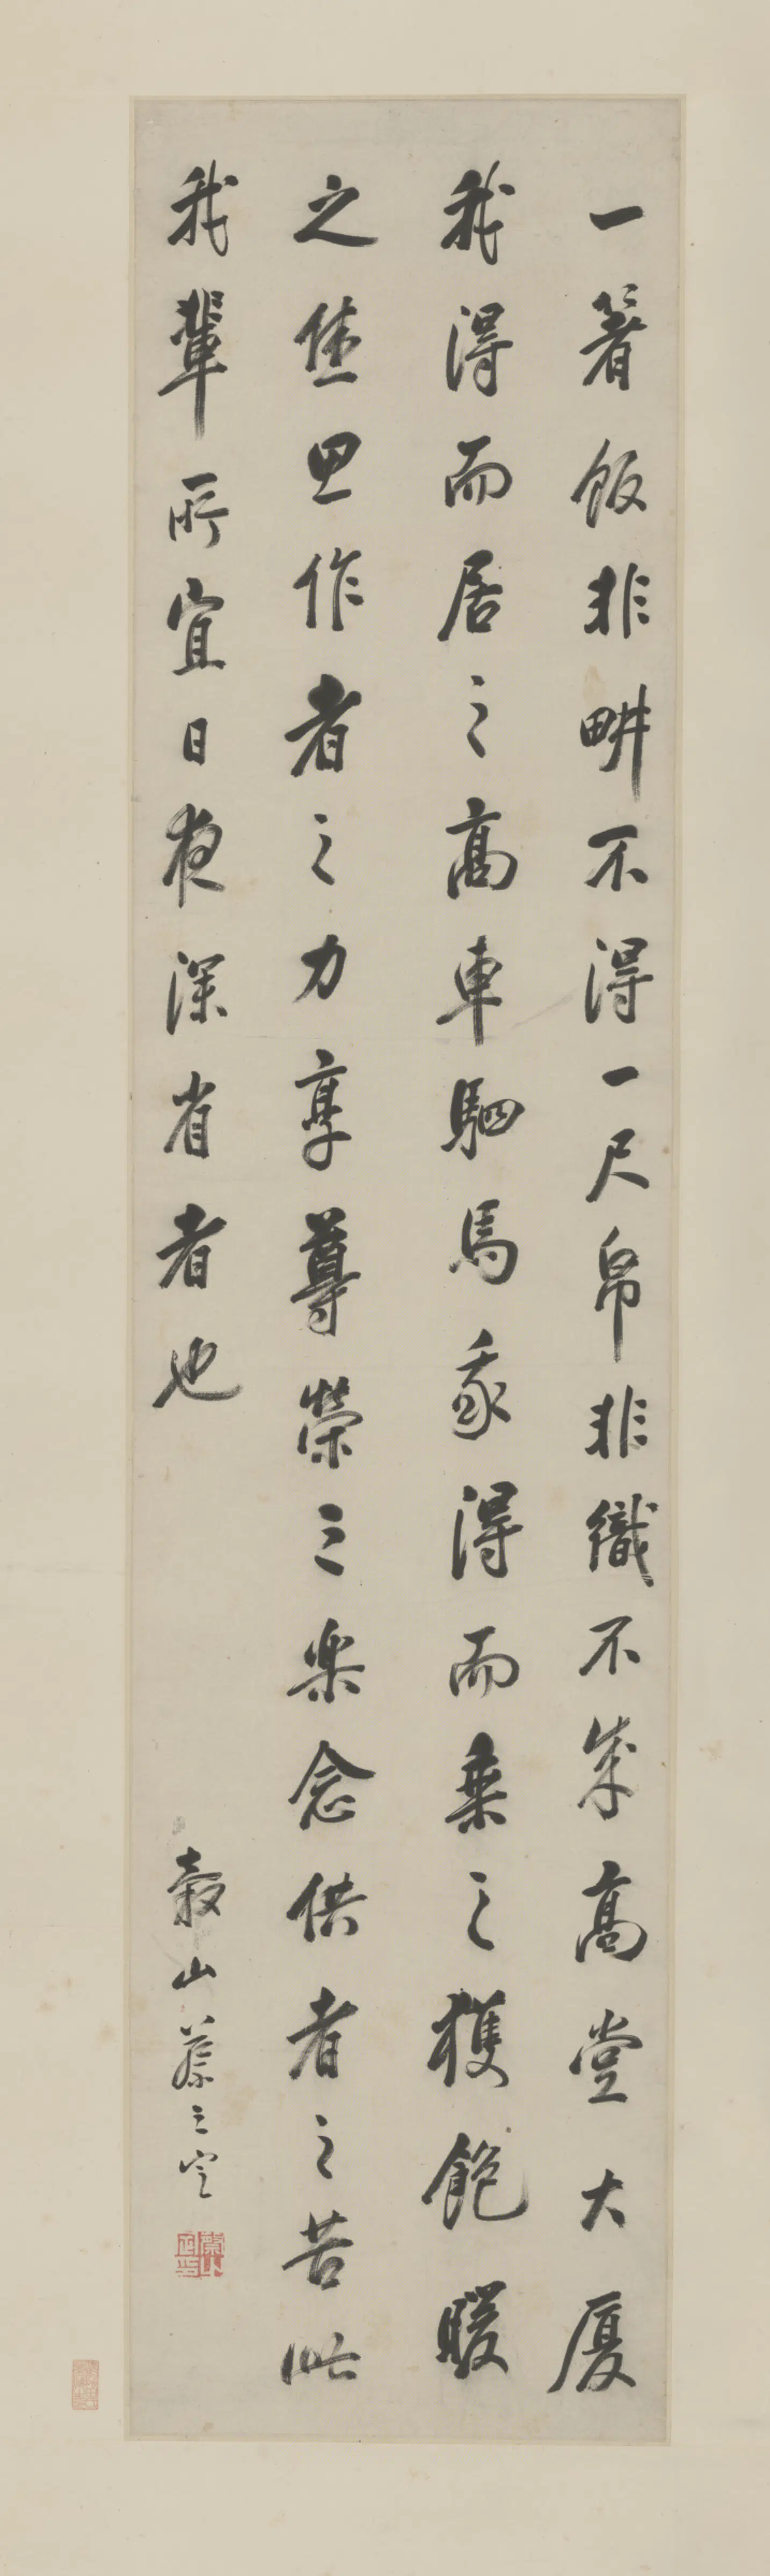 一箸飯非畊不得一尺帛非織不成高堂大廈
我得而居之高車駟馬我得而乘之獲飽暖
之休思作者之力享尊榮之樂念供者之苦此
我輩所宜日夜深省者也
穀山蔡之定
蔡之定印